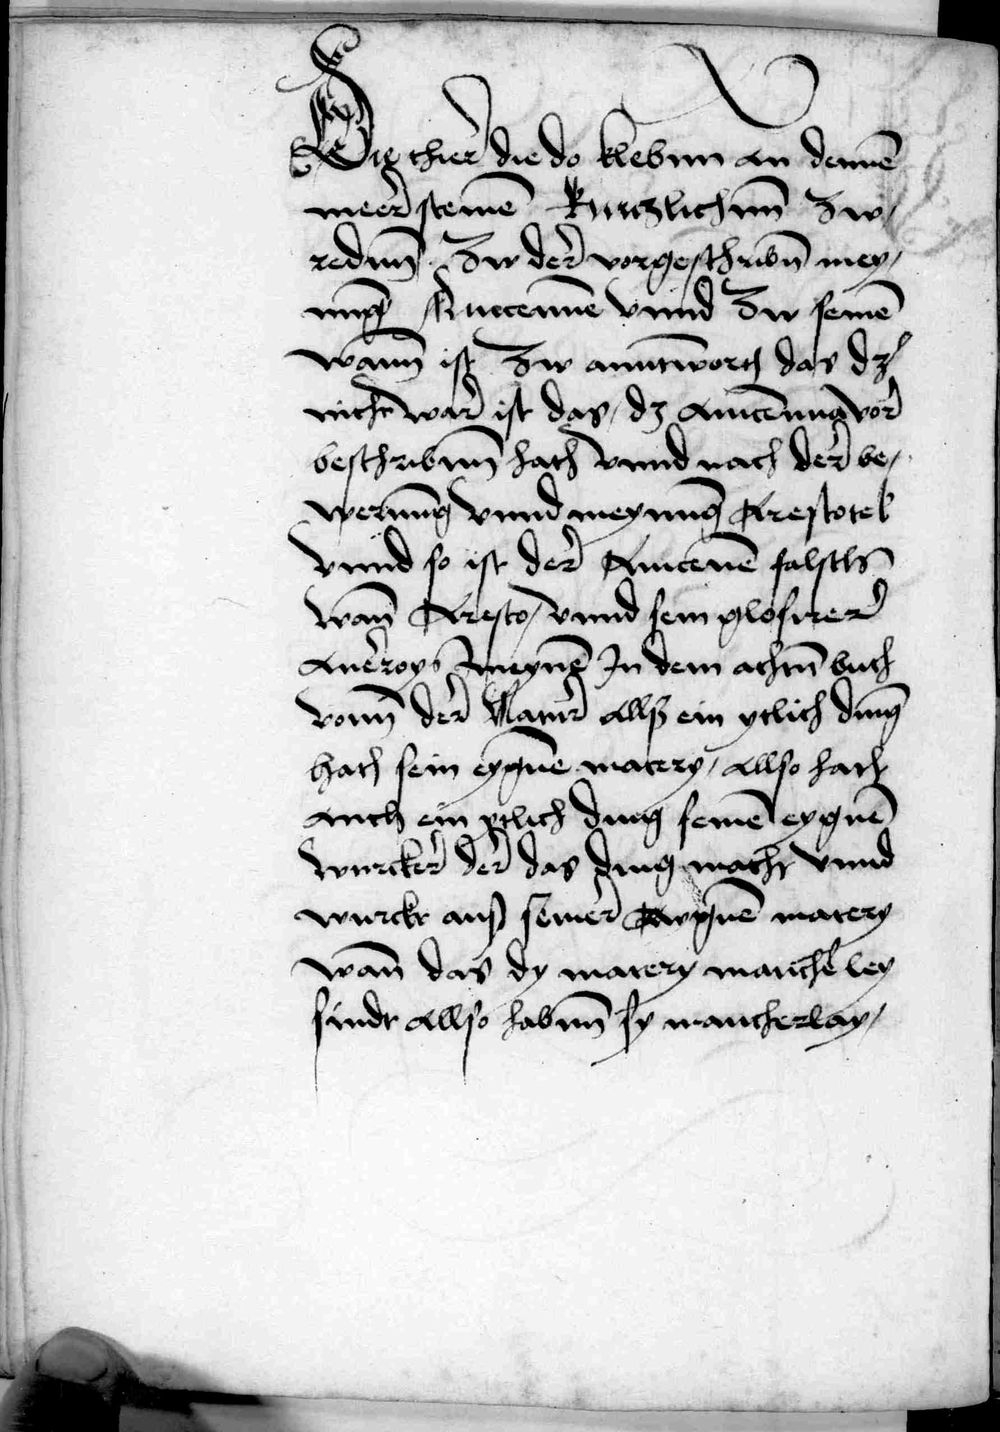 Dig thier die do klebnn an dennē
meer steinē kurtzlichnn zw,
rednn zw der vorgeschribn̄ mey,
nnng Auicenne vnnd zw seinē
wann ist zw anntwortt das dz
nicht war ist das, dz Auicenna vor
beschribnn hatt vnnd nach der be,
wernng vnnd meynnng Arestotel
vnnd so ist der Auicenne falsch
wann Aresto, vnnd sein glosirer
Aueroys meynē In dem achtn̄ buch
vonn der Natur allß ein ytlich ding
hatt sein eygne matery, allso hatt
auch ein ytlich ding seinē eygnē
wurcker der das ding macht vnnd
wurckt auß seiner eygnē matery
wann das dy matery mancherley
sindt allso habnn sy mancherlay,